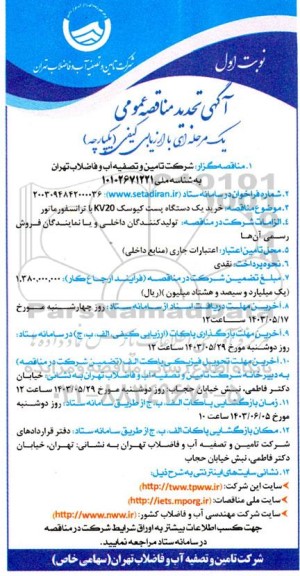 شرکت تامین و تصفیه آب و فاضلاب تهران
نوبت اول
آگهی تجدید مناقصه عمومی
یک مرحله ای با ارزیابی کیفی (یکپارچه)
۱. مناقصه‌گزار: شرکت تامین و تصفیه آب و فاضلاب تهران
به شناسه ملی ۱۰۱۰۲۶۷۱۲۲۱
۲. شماره فراخوان در سامانه ستاد (www.setadiran.ir): ۲۰۰۳۰۹۴۸۴۲۰۰۰۰۳۶
۳. موضوع مناقصه: خرید یک دستگاه پست کیوسک KV20 با ترانسفورماتور
۴. الزامات شرکت در مناقصه: تولیدکنندگان داخلی و یا نمایندگان فروش
رسمی آن‌ها
۵. محل تامین اعتبار: اعتبارات جاری (منابع داخلی)
۶. نحوه پرداخت: نقدی
۷. مبلغ تضمین شرکت در مناقصه (فرآیند ارجاع کار): ۱.۳۸۰.۰۰۰.۰۰۰
(یک میلیارد و سیصد و هشتاد میلیون) (ریال)
۸. آخرین مهلت دریافت اسناد از سامانه ستاد: روز چهارشنبه مورخ
۱۴۰۳/۰۵/۱۷ ساعت ۱۲
۹. آخرین مهلت بارگذاری پاکات (ارزیابی کیفی، الف، ب، ج) در سامانه ستاد:
روز دوشنبه مورخ ۱۴۰۳/۰۵/۲۹ ساعت ۱۲
۱۰. آخرین مهلت تحویل فیزیکی پاکت الف (تضمین شرکت در مناقصه)
دکتر فاطمی، نبش خیابان حجاب: روز دوشنبه مورخ ۱۴۰۳/۰۵/۲۹ ساعت ۱۲
۱۱. زمان بازگشایی پاکات الف، ب، ج از طریق سامانه ستاد: روز دوشنبه
مورخ ۱۴۰۳/۰۶/۰۵ ساعت ۱۰
۱۲. مکان بازگشایی پاکات الف، ب، ج از طریق سامانه ستاد: دفتر قراردادهای
شرکت تامین و تصفیه آب و فاضلاب تهران به نشانی: تهران، خیابان
دکتر فاطمی، نبش خیابان حجاب
۱۳. نشانی سایت‌های اینترنتی به شرح ذیل:
سایت این شرکت: (http://www.tpww.ir)
سایت ملی مناقصات: (http://iets.mporg.ir)
سایت شرکت مهندسی آب و فاضلاب کشور: (http://www.nww.ir)
جهت کسب اطلاعات بیشتر به اوراق شرایط شرکت در مناقصه
در سامانه ستاد مراجعه نمایید.
شرکت تامین و تصفیه آب و فاضلاب تهران (سهامی خاص)